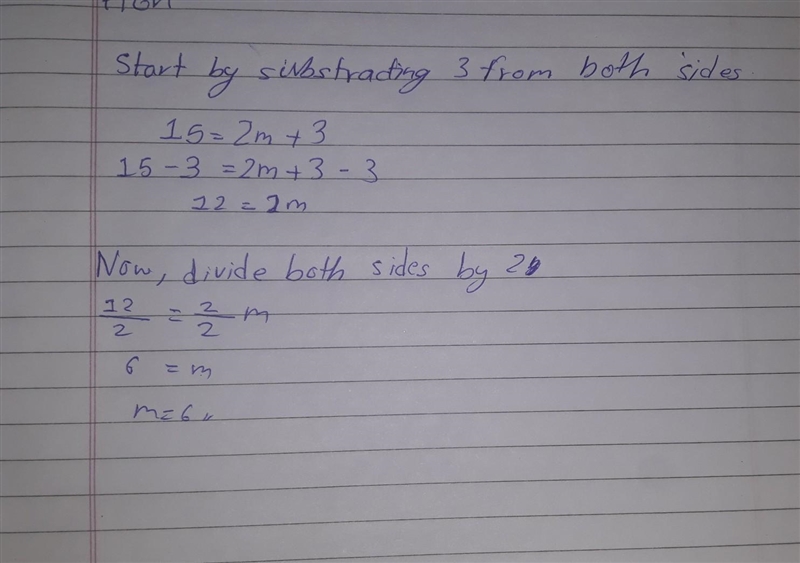 Start by sinbstrading 3 from both sides.
15 = 2m + 3
15 - 3 = 2m + 3 - 3
12 = 2m
Now, divide both sides by 2
12/2 = 2/2 m
6 = m
m = 6